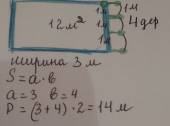 1м
12 м² 1м 4 дер
1м
ширина 3 м
S = a · b
a = 3 b = 4
P = (3+4) · 2 = 14 м